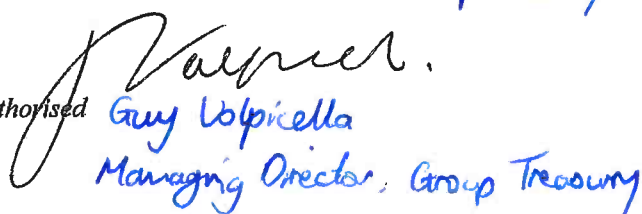 Volpicel.
thorised Guy Volpicella
Managing Director, Group Treasury